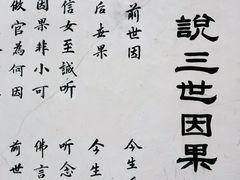 說三世因果
前世因 今生
果 今生
信女至誠听 听念
因果非小可 佛言
做官為何因 前世